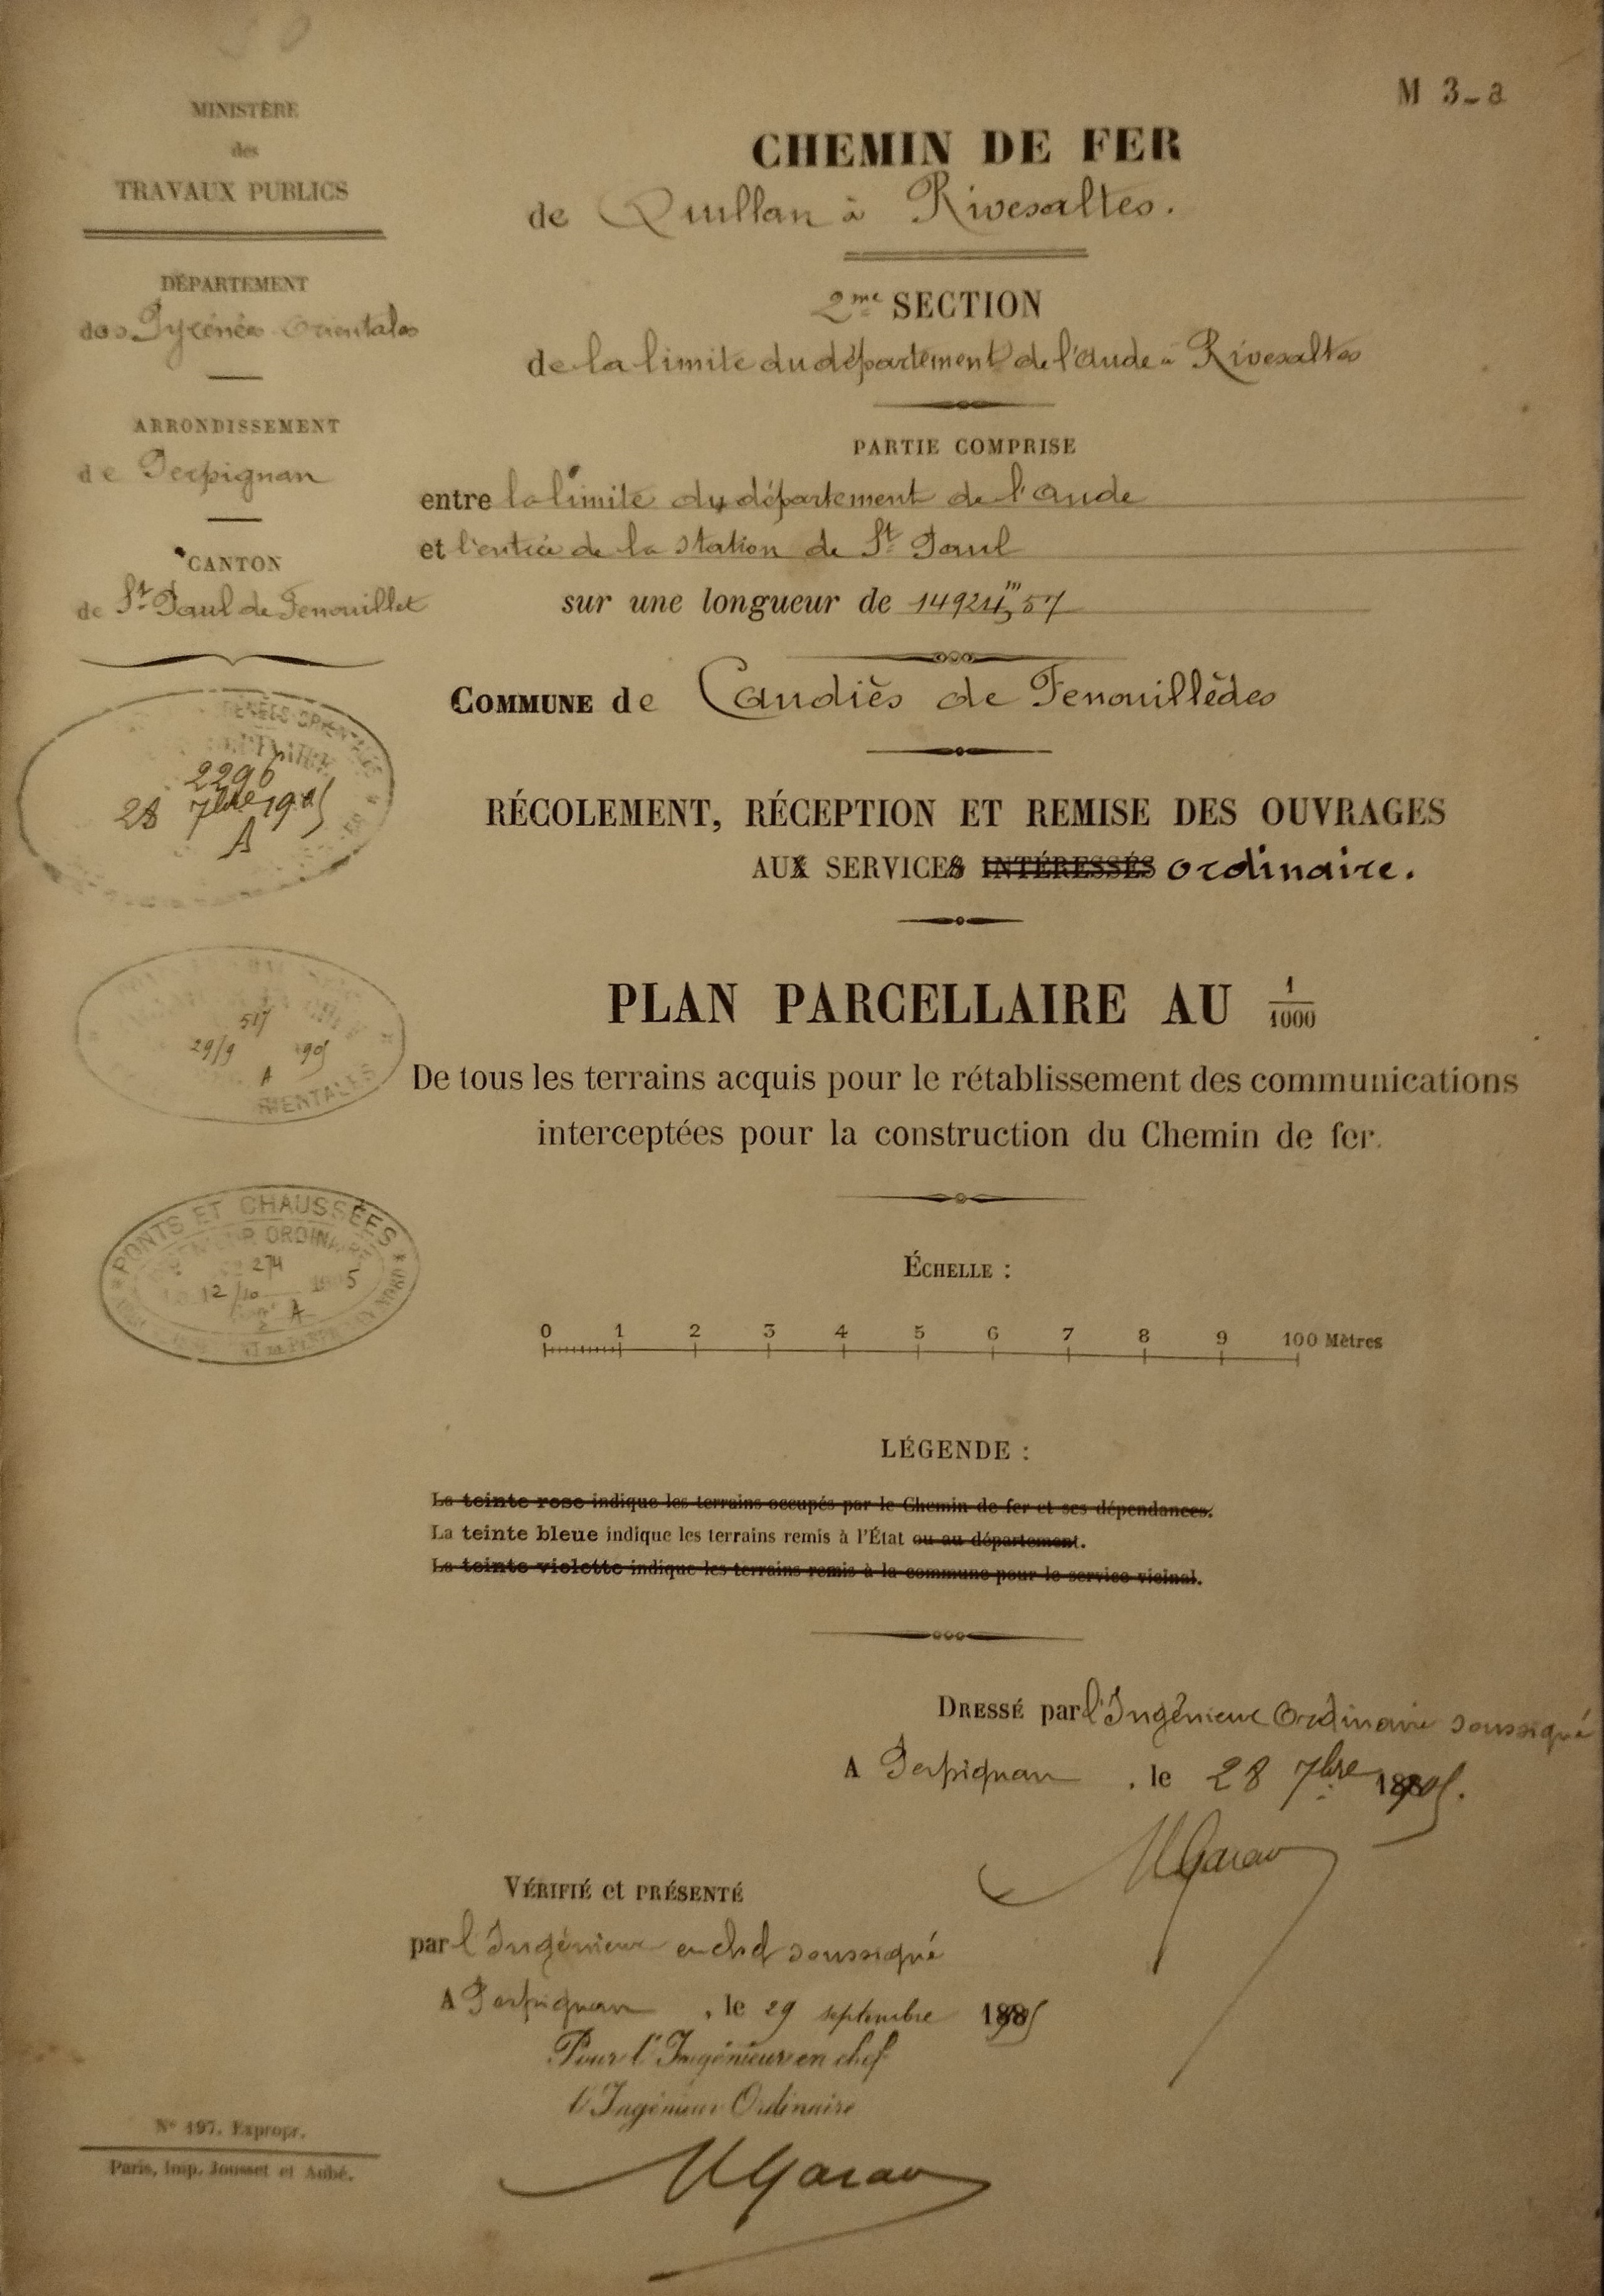 M 3-a
MINISTÈRE
des
TRAVAUX PUBLICS
DÉPARTEMENT
des Pyrénées Orientales
ARRONDISSEMENT
de Perpignan
CANTON
de St Paul de Fenouillet
CHEMIN DE FER
de Quillan à Rivesaltes.
2me SECTION
de la limite du département de l'Aude à Rivesaltes
PARTIE COMPRISE
entre la limite du département de l'Aude
et l'entrée de la station de St Paul
sur une longueur de 14924m,57
COMMUNE de Caudiès de Fenouillèdes
RÉCOLEMENT, RÉCEPTION ET REMISE DES OUVRAGES
AUX SERVICES INTÉRESSÉS ordinaire.
PLAN PARCELLAIRE AU 1/1000
De tous les terrains acquis pour le rétablissement des communications
interceptées pour la construction du Chemin de fer.
ÉCHELLE :
0 1 2 3 4 5 6 7 8 9 100 Mètres
LÉGENDE :
La teinte rose indique les terrains occupés par le Chemin de fer et ses dépendances.
La teinte bleue indique les terrains remis à l'État ou au département.
La teinte violette indique les terrains remis à la commune pour le service vicinal.
PYRÉNÉES-ORIENTALES
2296
28 7bre 1905
A
517
29/9 1905
A
RIENTALES
PONTS ET CHAUSSÉES
INGÉNIEUR ORDINAIRE
274
12/10 1905
A
DRESSÉ par l'Ingénieur Ordinaire soussigné
A Perpignan, le 28 7bre 1905.
VÉRIFIÉ et PRÉSENTÉ
par l'Ingénieur en chef soussigné
A Perpignan, le 29 septembre 1905
Pour l'Ingénieur en chef
l'Ingénieur Ordinaire
N° 197. Expropr.
Paris, Imp. Jousset et Aubé.